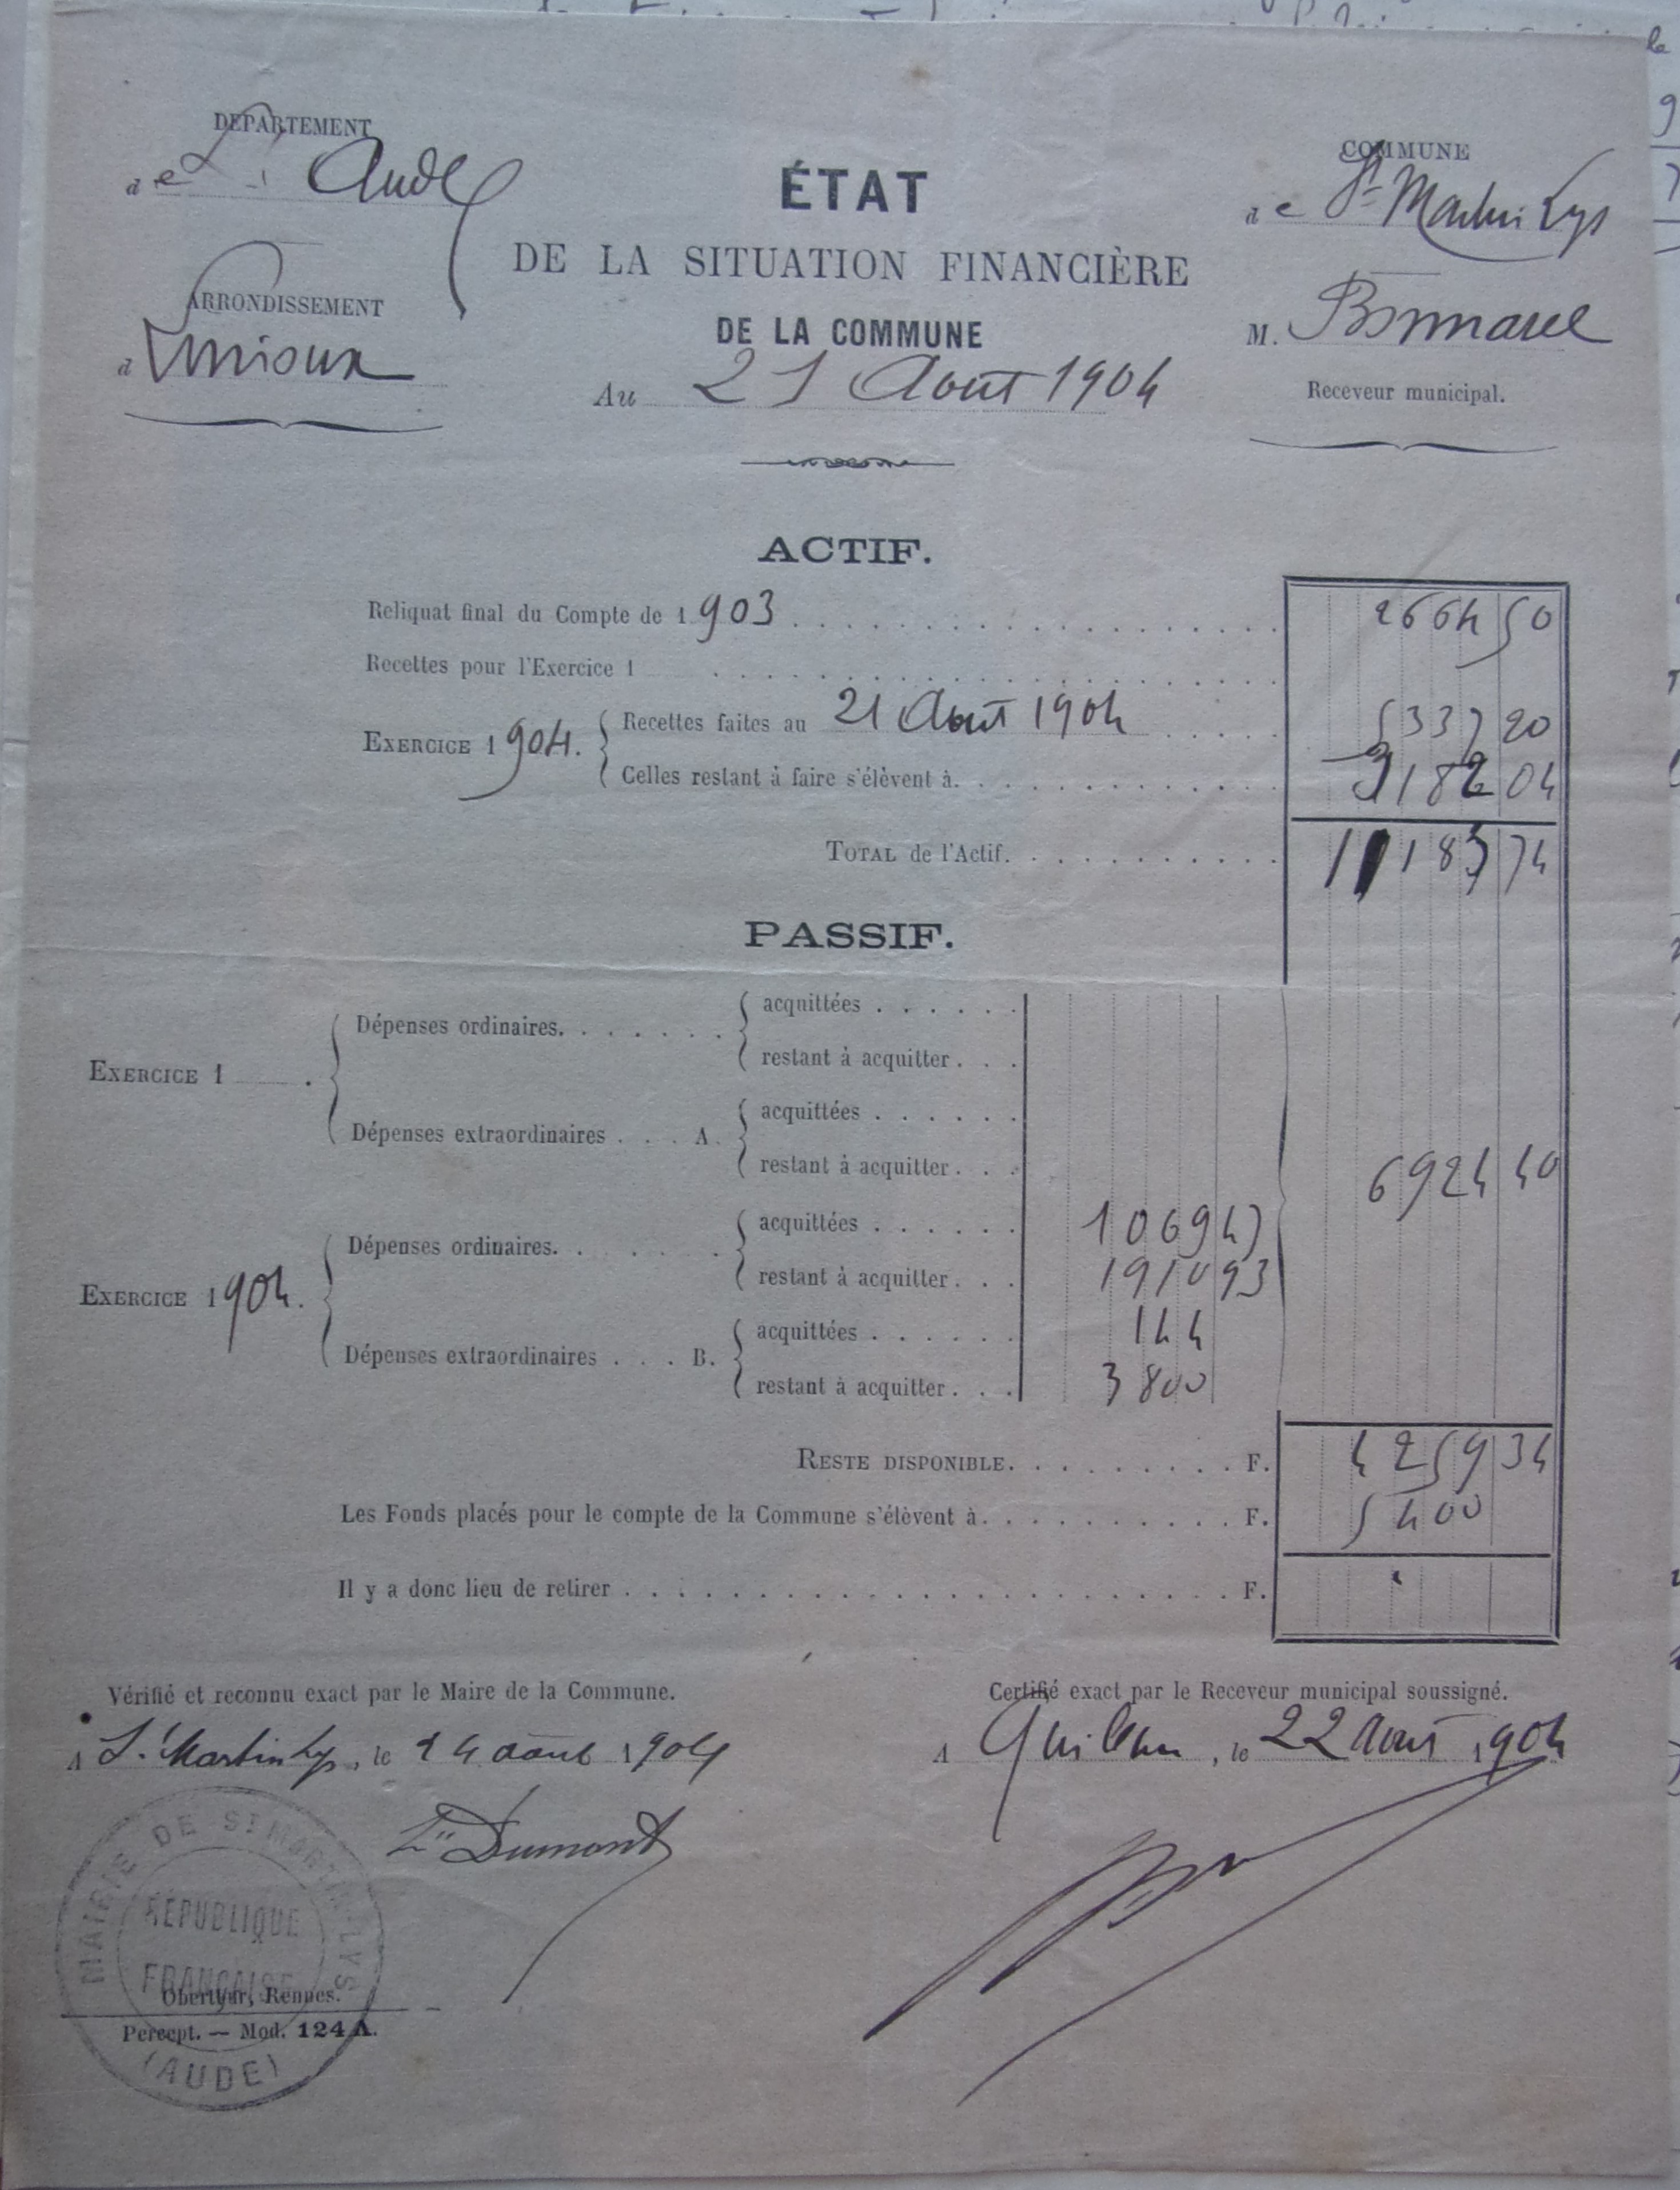 DÉPARTEMENT
de L' Aude
COMMUNE
de St Martin Lys
ÉTAT
DE LA SITUATION FINANCIÈRE
DE LA COMMUNE
Au 21 Aout 1904
ARRONDISSEMENT
d Limoux
M. Bonnarel
Receveur municipal.
ACTIF.
Reliquat final du Compte de 1903 2664 50
Recettes pour l'Exercice 1
EXERCICE 1904. Recettes faites au 21 Aout 1904 5337 20
Celles restant à faire s'élèvent à. 3182 04
TOTAL de l'Actif. 11183 74
PASSIF.
EXERCICE 1 .
Dépenses ordinaires. acquittées
restant à acquitter
Dépenses extraordinaires A. acquittées
restant à acquitter
6924 40
EXERCICE 1904.
Dépenses ordinaires. acquittées 1069 47
restant à acquitter 1910 93
Dépenses extraordinaires B. acquittées 144
restant à acquitter 3800
RESTE DISPONIBLE. F. 4259 34
Les Fonds placés pour le compte de la Commune s'élèvent à. F. 5400
Il y a donc lieu de retirer F.
Vérifié et reconnu exact par le Maire de la Commune.
A St Martin Lys, le 24 aout 1904
Dumont
Certifié exact par le Receveur municipal soussigné.
A Quillan, le 22 Aout 1904
MAIRIE DE ST MARTIN-LYS
RÉPUBLIQUE
FRANÇAISE
(AUDE)
Oberthur, Rennes.
Percept. — Mod. 124 A.